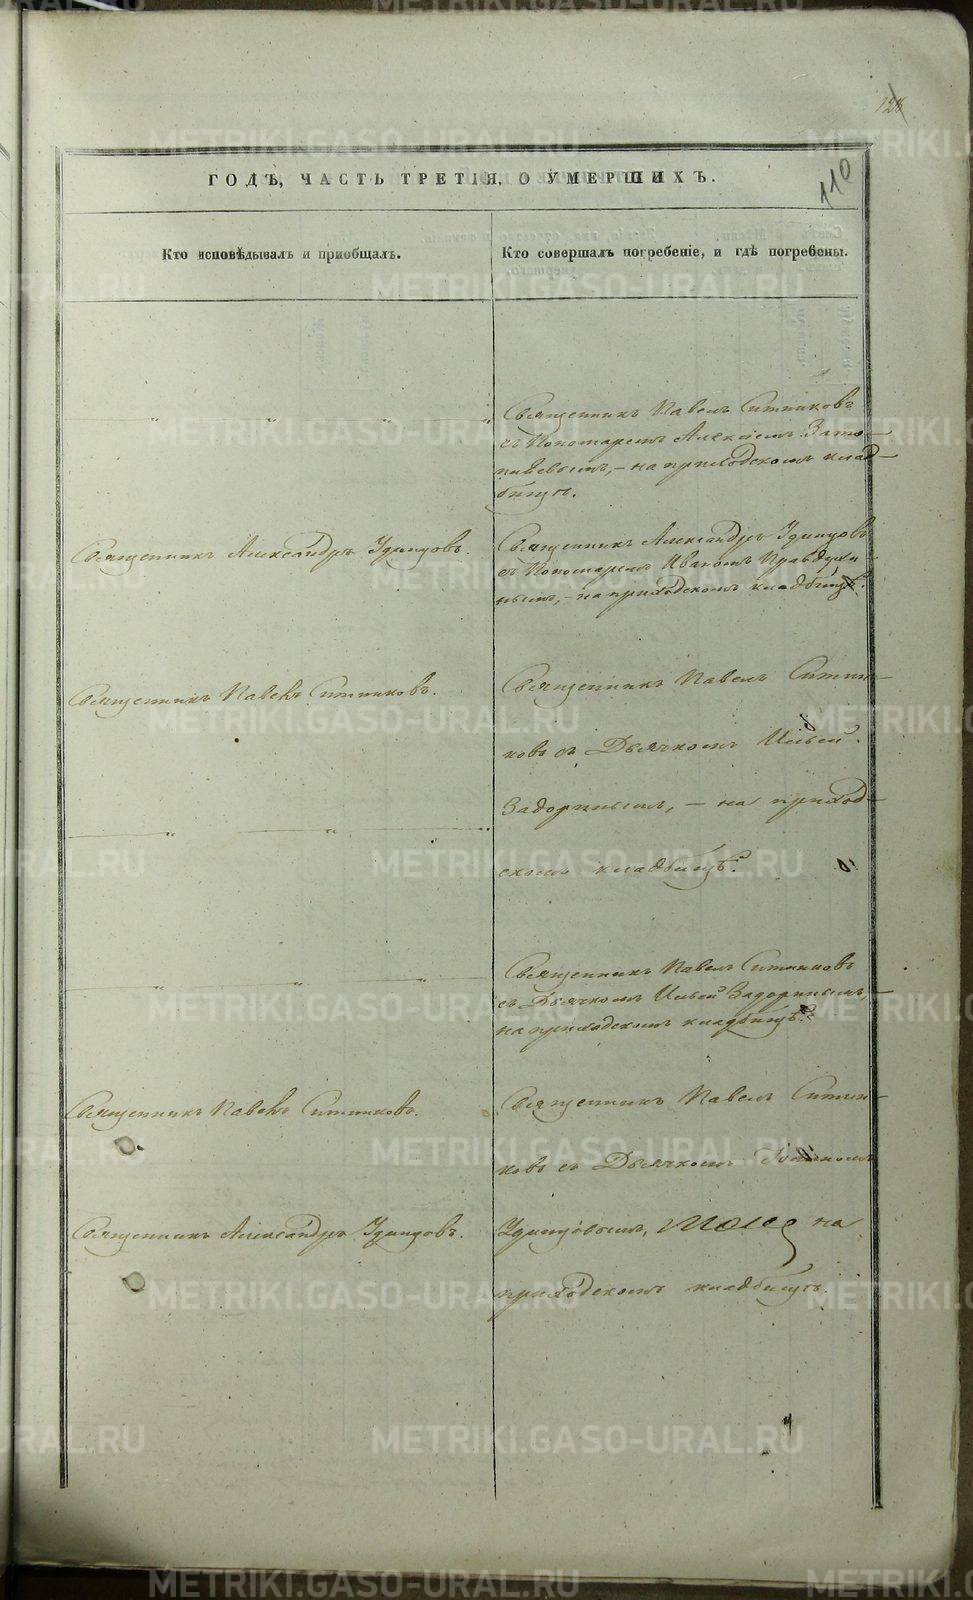 128
110
ГОДЪ, ЧАСТЬ ТРЕТІЯ, О УМЕРШИХЪ.
Кто исповѣдывалъ и пріобщалъ.
Кто совершалъ погребеніе, и гдѣ погребены.
Священникъ Павелъ Ситниковъ
съ Пономаремъ Алексіемъ
на приходскомъ клад-
бищѣ.
Священникъ Александръ Удинцовъ.
Священникъ Александръ Удинцовъ
съ Пономаремъ Иваномъ Правдухи
нымъ, – на приходскомъ кладбищѣ.
Священникъ Павелъ Ситниковъ.
Священникъ Павелъ Ситни-
ковъ съ Дьячкомъ Ильей
Задоринымъ, – на приход-
скомъ кладбищѣ.
Священникъ Павелъ Ситниковъ
съ Дьячкомъ Ильей Задоринымъ,
на приходскомъ кладбищѣ.
Священникъ Павелъ Ситниковъ.
Священникъ Павелъ Ситни-
ковъ съ Дьячкомъ
Священникъ Александръ Удинцовъ.
Удинцовымъ, на
приходскомъ кладбищѣ.
METRIKI.GASO-URAL.RU